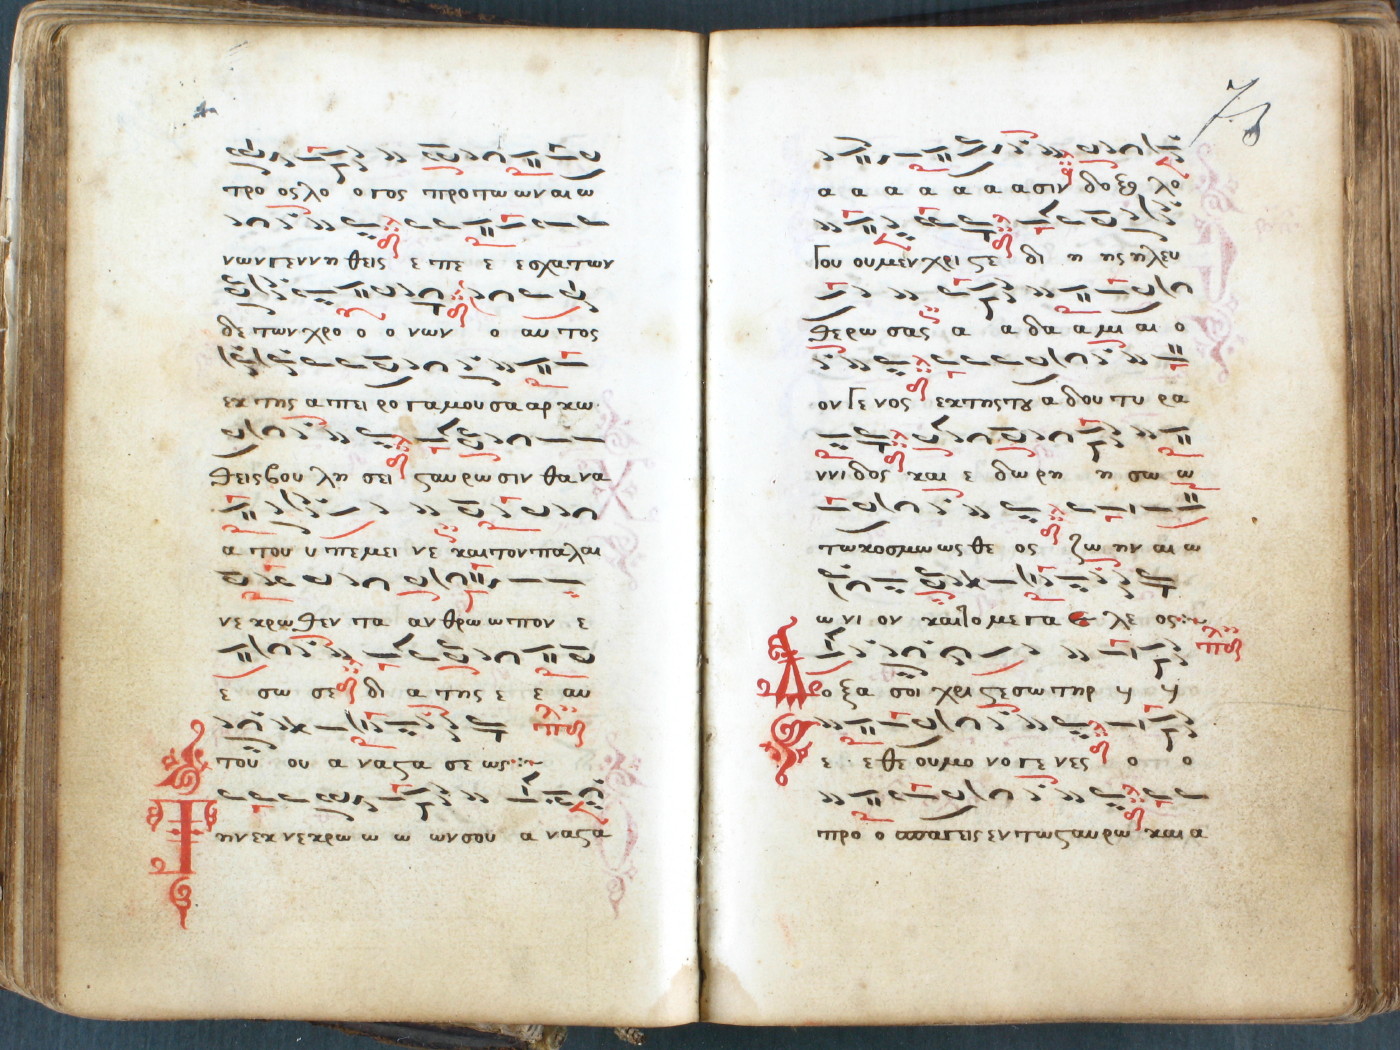 προ ος λο ο γος προ πω ων αι ω
νων γεν νη θεις ε πε ε εσχα των
δε των χρο ο ο νων ο αυ τος
εκ της α πει ρο γα μου σα αρ κω
θεις βου λη σει ϛαυ ρω σιν θα να
α του υ πε μει νε και τον πα λαι
νε κρω θεν τα αν θρω ω πον ε
ε σω σε δι α της ε ε αυ
του ου α να ϛα σε ως
Την εκ νε κρω ω ω ων σου α να ϛα
73
α α α α α α α σιν δο ξο λο
γου ου μεν χρι ϛε δι η ης η λευ
θε ρω σας α α δα α μι αι ο
ον γε νος εκ της τȣ α δου τυ ρα
ννι δος και ε δω ρη η σω ω
τω κοσ μω ως θε ος ζω ην αι ω
ω νι ον και το με γα λε ος
Δο ξα σοι χρι ϛε σω τηρ υι υι
ε ε θε ου μο νο γε νες ο ο
προ ο σπα γεις εν τω ϛαυ ρω και α